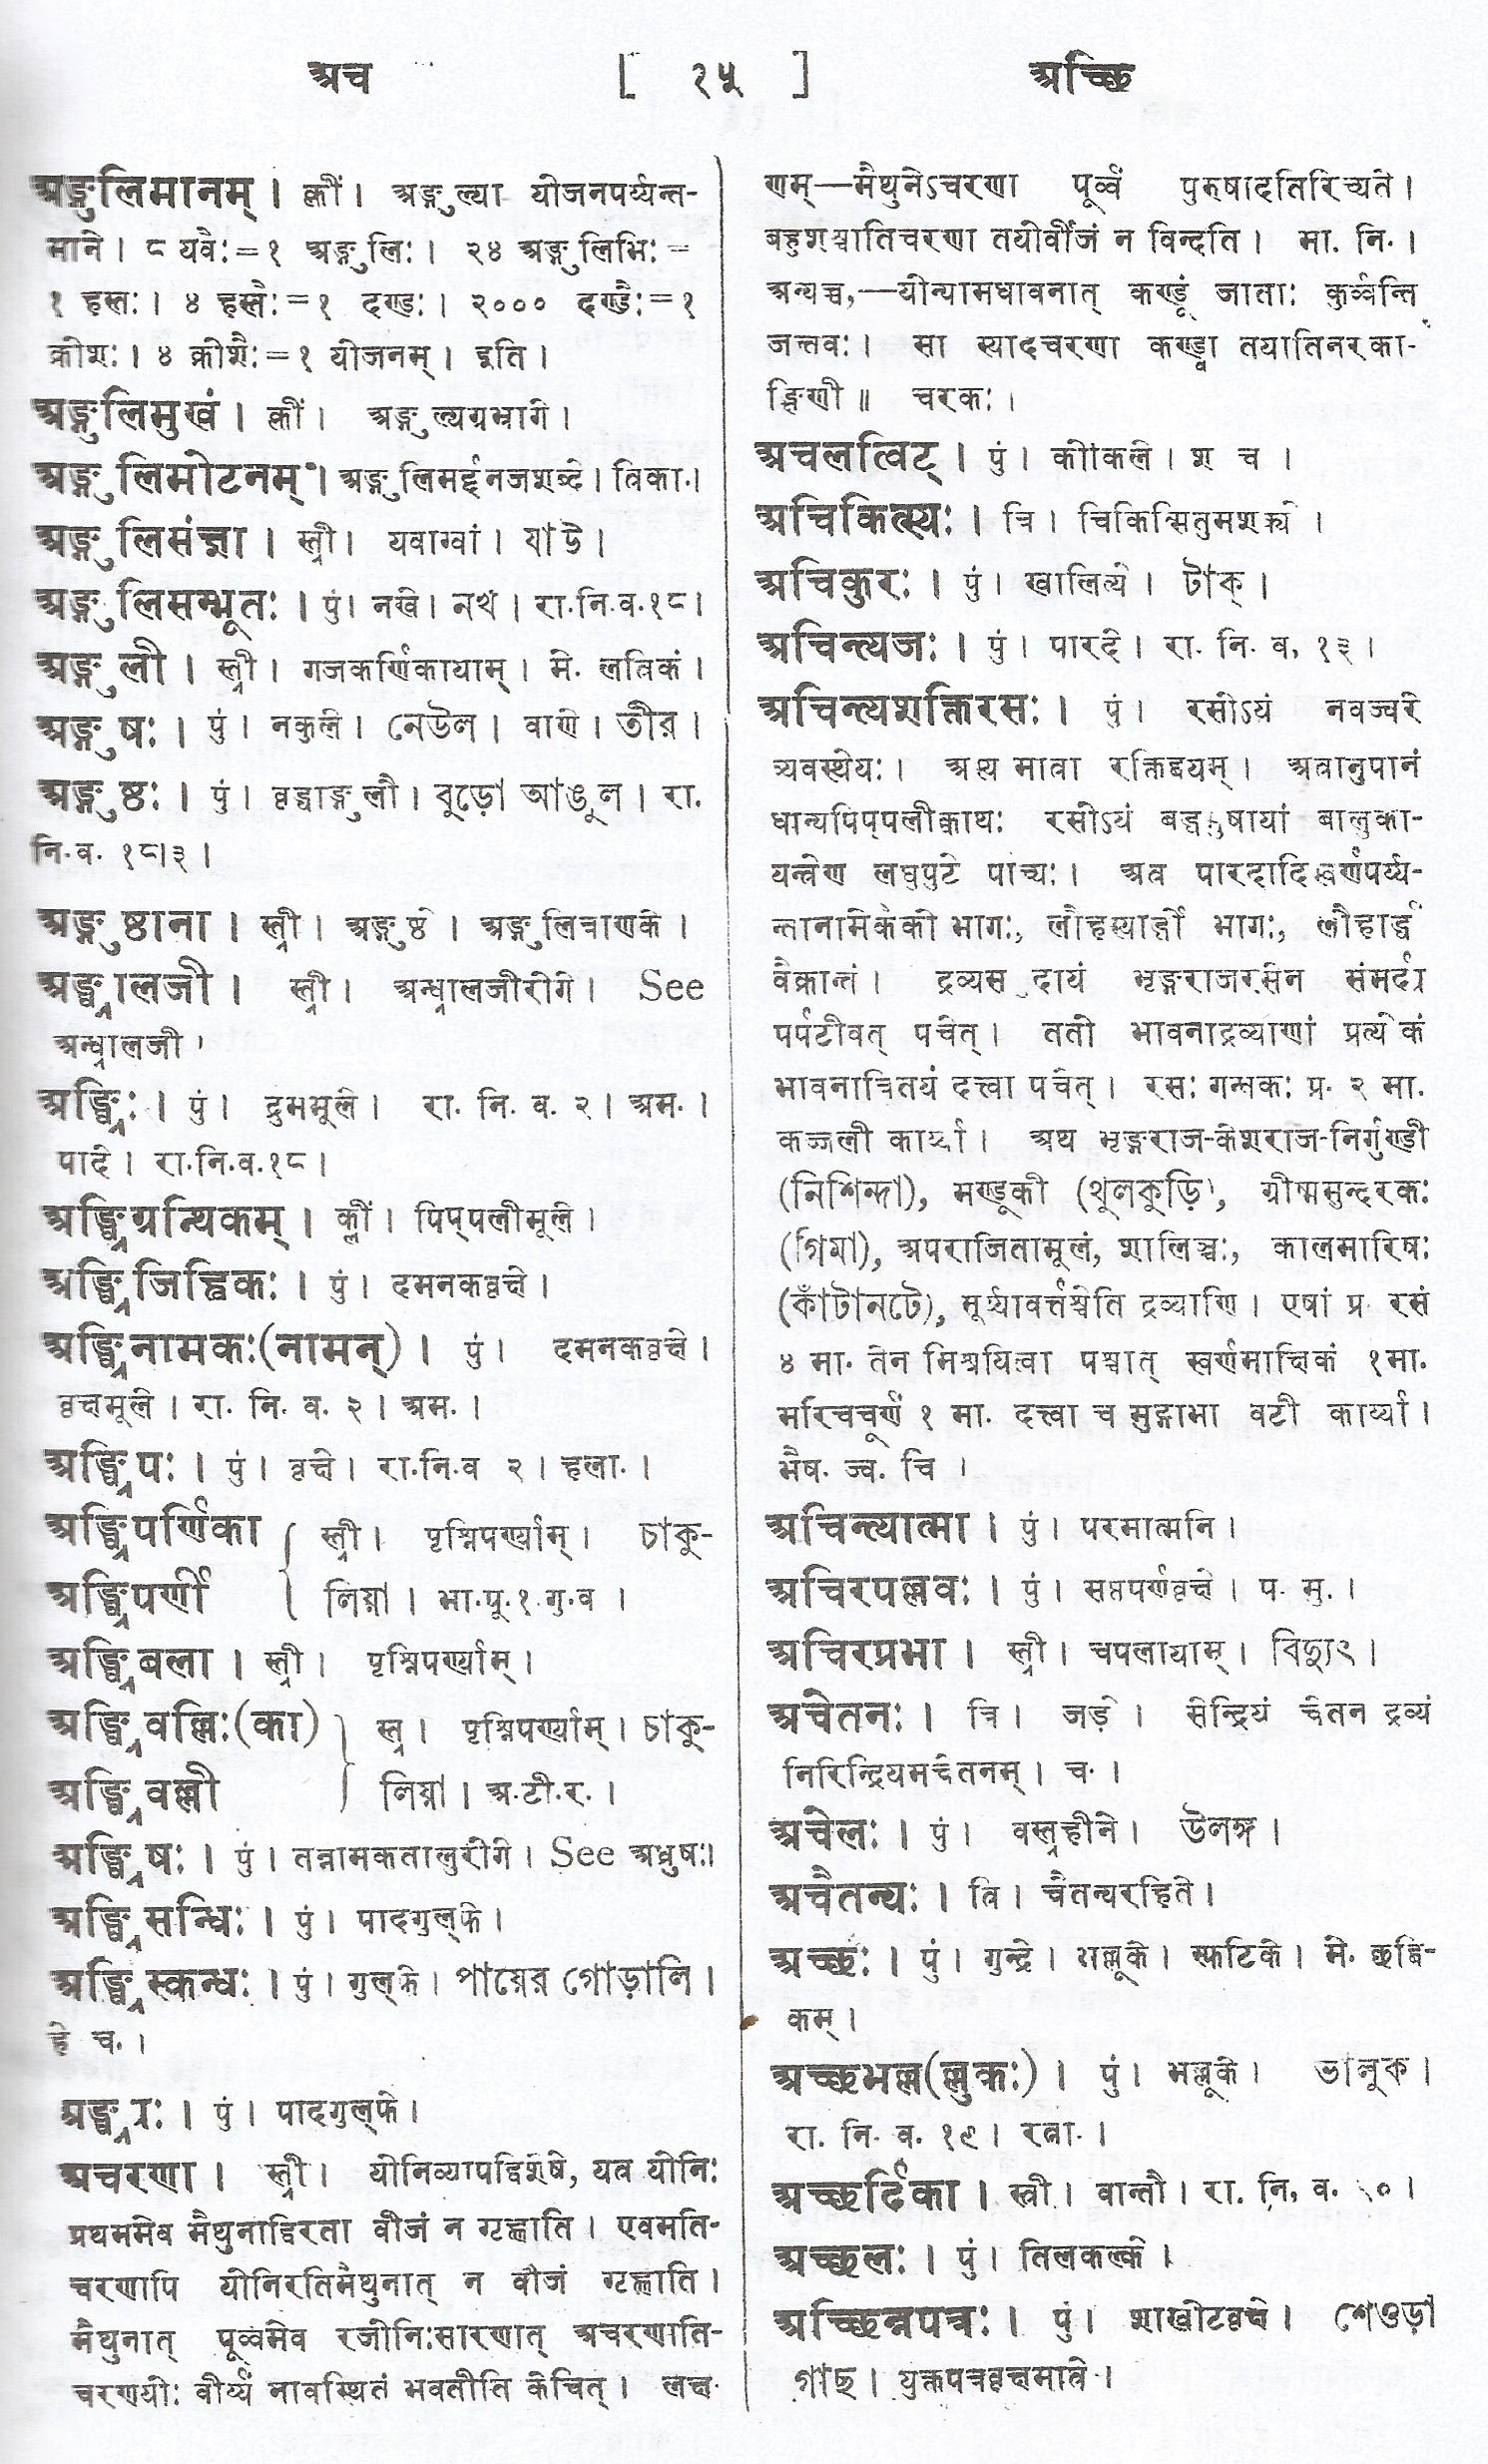 अच [ १५ ] अच्छि
अङ्गुलिमानम् । क्लीं । अङ्गुल्या योजनपर्य्यन्त-
माने । ८ यवैः=१ अङ्गुलिः । २४ अङ्गुलिभिः=
१ हस्तः । ४ हस्तैः=१ दण्डः । २००० दण्डैः=१
क्रोशः । ४ क्रोशैः=१ योजनम् । इति ।
अङ्गुलिमुखं । क्लीं । अङ्गुल्यग्रभागे ।
अङ्गुलिमोटनम् । अङ्गुलिमर्द्दनजशब्दे । त्रिका. ।
अङ्गुलिसंज्ञा । स्त्री । यवाग्वां । याउ ।
अङ्गुलिसम्भूतः । पुं । नखे । নখ । रा.नि.व.१८ ।
अङ्गुली । स्त्री । गजकर्णिकायाम् । मे. लत्रिकं ।
अङ्गुषः । पुं । नकुले । নেউল । वाणे । তীর ।
अङ्गुष्ठः । पुं । वृद्धाङ्गुलौ । বুড়ো আঙুল । रा.
नि.व. १८।३ ।
अङ्गुष्ठाना । स्त्री । अङ्गुष्ठे । अङ्गुलित्राणके ।
अङ्घ्रालजी । स्त्री । अन्ध्रालजीरोगे । See
अन्ध्रालजी ।
अङ्घ्रिः । पुं । द्रुममूले । रा. नि. व. २ । अम. ।
पादे । रा.नि.व.१८ ।
अङ्घ्रिग्रन्थिकम् । क्लीं । पिप्पलीमूले ।
अङ्घ्रिजिह्विकः । पुं । दमनकवृक्षे ।
अङ्घ्रिनामकः(नामन्) । पुं । दमनकवृक्षे ।
वृक्षमूले । रा. नि. व. २ । अम. ।
अङ्घ्रिपः । पुं । वृक्षे । रा.नि.व २ । हला. ।
अङ्घ्रिपर्णिका स्त्री । पृश्निपर्ण्याम् । চাকু-
अङ्घ्रिपर्णी লিয়া । भा.पू.१.गु.व ।
अङ्घ्रिबला । स्त्री । पृश्निपर्ण्याम् ।
अङ्घ्रिवल्लिः(का) स्त्र । पृश्निपर्ण्याम् । চাকু-
अङ्घ्रिवल्ली লিয়া । अ.टी.र. ।
अङ्घ्रिषः । पुं । तन्नामकतालुरोगे । See अध्रुषः।
अङ्घ्रिसन्धिः । पुं । पादगुल्फे ।
अङ्घ्रिस्कन्धः । पुं । गुल्फे । পায়ের গোড়ালি ।
हे च. ।
अङ्घ्रारः । पुं । पादगुल्फे ।
अचरणा । स्त्री । योनिव्यापद्विशेषे, यत्र योनिः
प्रथममेव मैथुनाद्विरता वीजं न गृह्णाति । एवमति-
चरणापि योनिरतिमैथुनात् न वीजं गृह्णाति ।
मैथुनात् पूर्व्वमेव रजोनिःसारणात् अचरणाति-
चरणयोः वीर्य्यं नावस्थितं भवतीति केचित् । लक्ष-
णम्—मैथुनेऽचरणा पूर्व्वं पुरुषादतिरिच्यते ।
बहुशश्चातिचरणा तयोर्वीजं न विन्दति । मा. नि. ।
अन्यच्च,—योन्यामधावनात् कण्डूं जाताः कुर्व्वन्ति
जन्तवः । सा स्यादचरणा कण्ड्वा तयातिनरका-
ङ्क्षिणी ॥ चरकः ।
अचलत्विट् । पुं । कोकिले । श च ।
अचिकित्स्यः । त्रि । चिकित्सितुमशक्ये ।
अचिकुरः । पुं । खालित्ये । টাক্ ।
अचिन्त्यजः । पुं । पारदे । रा. नि. व, १३ ।
अचिन्त्यशक्तिरसः । पुं । रसोऽयं नवज्वरे
व्यवस्थेयः । अस्य मात्रा रक्तिद्वयम् । अत्रानुपानं
धान्यपिप्पलीक्वाथः रसोऽयं बद्धमुषायां बालुका-
यन्त्रेण लघुपुटे पाच्यः । अत्र पारदादिस्वर्णपर्य्य-
न्तानामेकैको भागः, लौहस्यार्द्धो भागः, लौहार्द्धं
वैक्रान्तं । द्रव्यस दायं भृङ्गराजरसेन संमर्द्य
पर्पटीवत् पचेत् । ततो भावनाद्रव्याणां प्रत्येकं
भावनात्रितयं दत्त्वा पचेत् । रसः गन्धकः प्र. २ मा.
कज्जली कार्य्या । अथ भृङ्गराज-केशराज-निर्गुण्डी
(নিশিন্দা), मण्डूकी (থুলকুড়ি), ग्रीष्मसुन्दरकः
(গিমা), अपराजितामूलं, शालिञ्चः, कालमारिषः
(কাঁটানটে), सूर्य्यावर्त्तश्चेति द्रव्याणि । एषां प्र रसं
४ मा. तेन मिश्रयित्वा पश्चात् स्वर्णमाक्षिकं १मा.
मरिचचूर्णं १ मा. दत्त्वा च मुद्गाभा वटी कार्य्या ।
भैष. ज्व. चि ।
अचिन्त्यात्मा । पुं । परमात्मनि ।
अचिरपल्लवः । पुं । सप्तपर्णवृक्षे । प. मु. ।
अचिरप्रभा । स्त्री । चपलायाम् । বিদ্যুৎ ।
अचेतनः । त्रि । जड़े । सेन्द्रियं चेतन द्रव्यं
निरिन्द्रियमचेतनम् । च. ।
अचेलः । पुं । वस्त्रहीने । উলঙ্গ ।
अचैतन्यः । त्रि । चैतन्यरहिते ।
अच्छः । पुं । गुन्द्रे । भल्लूके । स्फटिके । मे. छद्वि-
कम् ।
अच्छभल्ल(ल्लुकः) । पुं । भल्लूके । ভাল্লুক ।
रा. नि. व. १९ । रत्ना. ।
अच्छर्दिका । स्त्री । वान्तौ । रा. नि, व. ०।
अच्छलः । पुं । तिलकल्के ।
अच्छिन्नपत्रः । पुं । शाखोटवृक्षे । শেওড়া
গাছ । युक्तपत्रवृक्षमात्रे ।